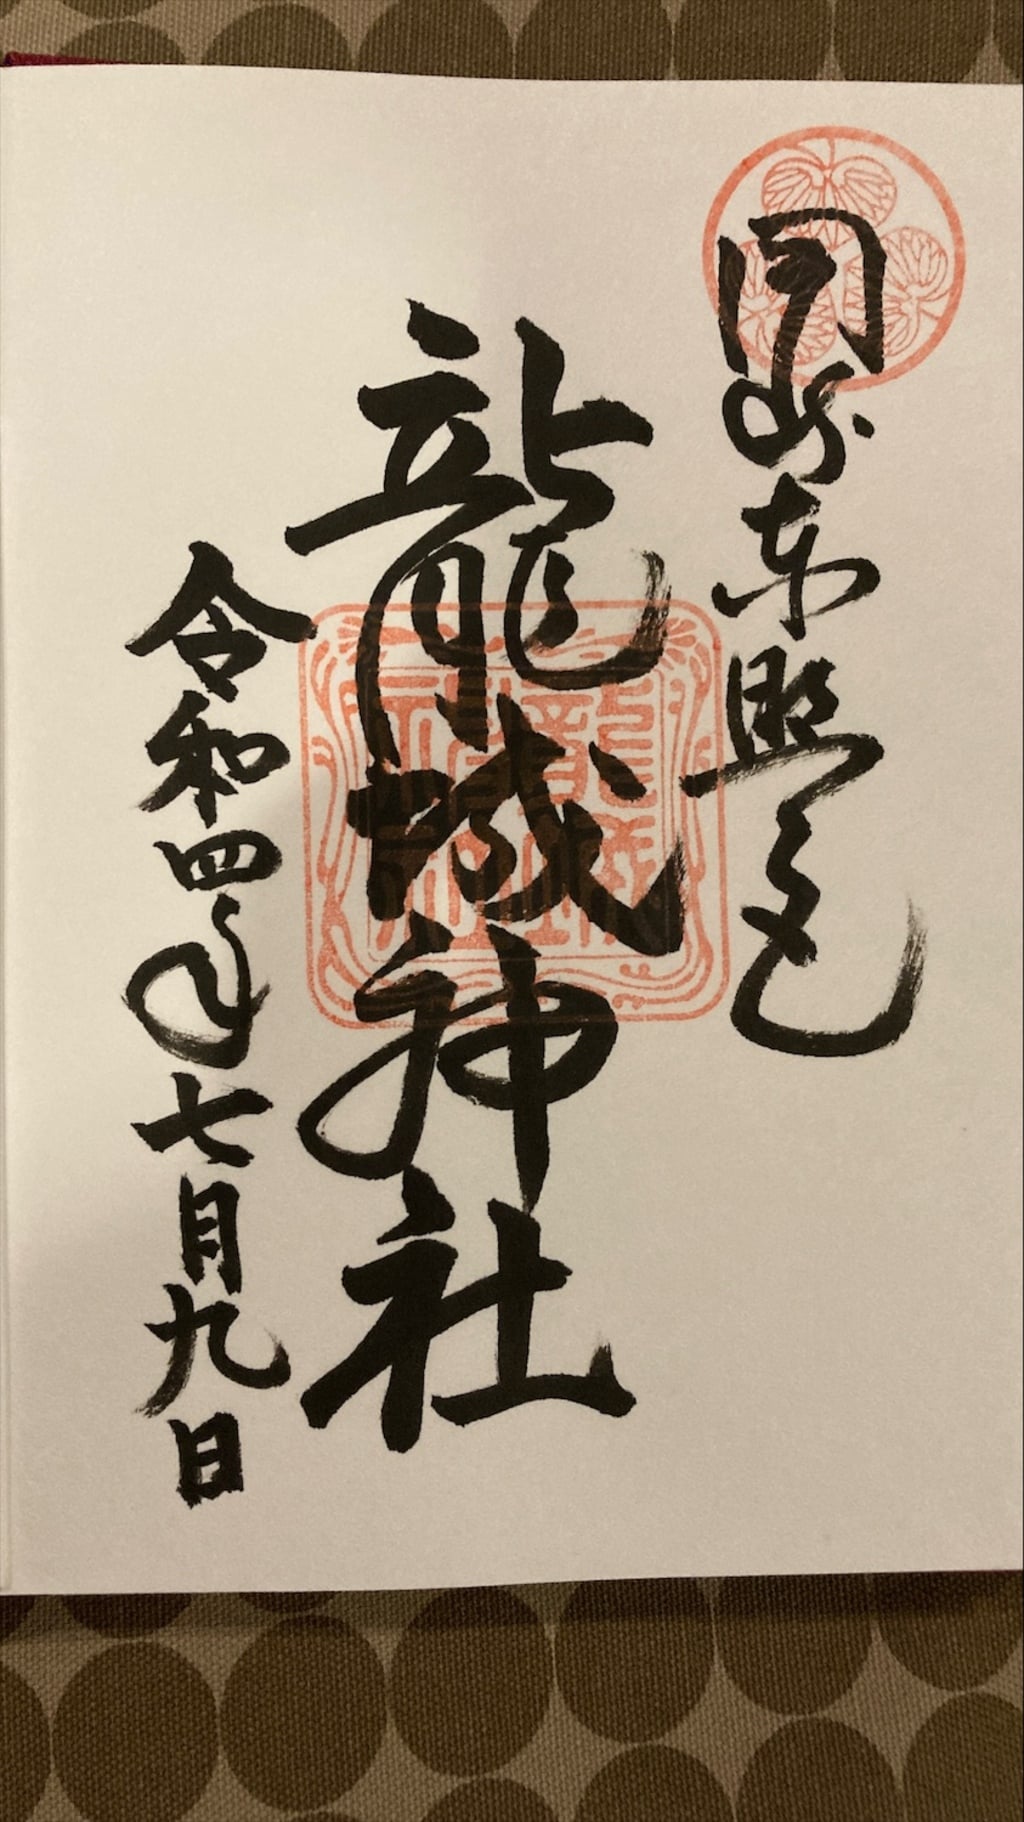 岡崎東照宮
龍城神社
令和四年七月九日